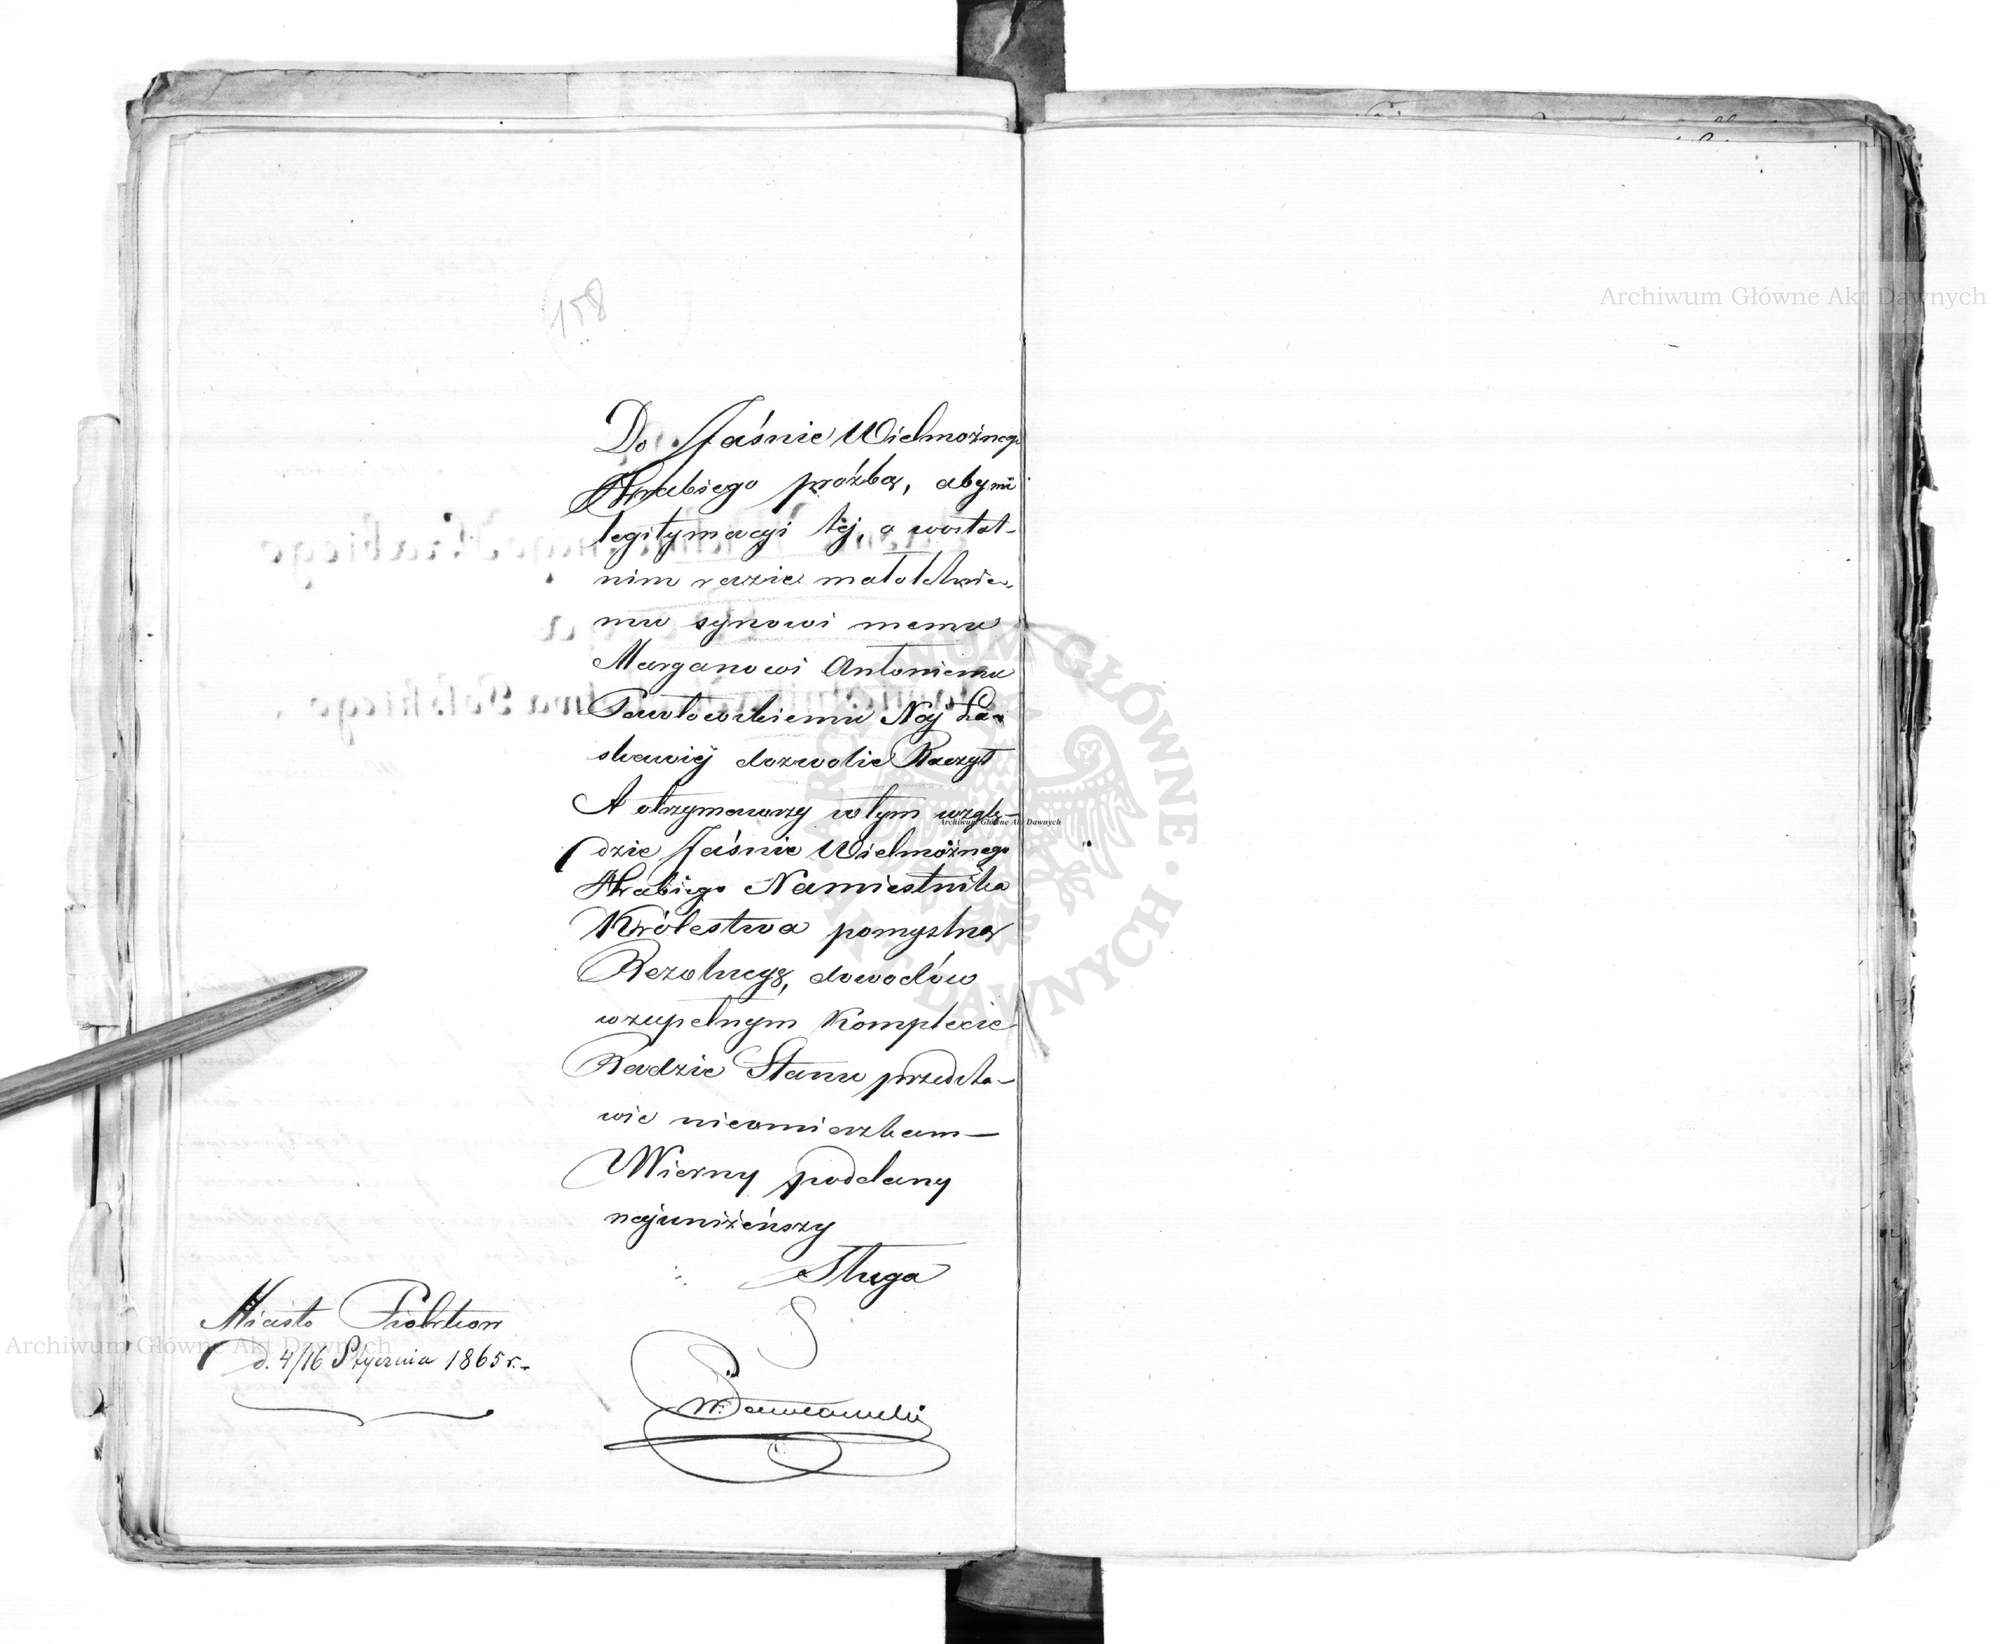 158
Do Jaśnie Wielmożnego
Hrabiego prożbą, aby mi
legitymacyi téj, a wostat-
nim razie małoletnie-
mu synowi memu
Maryanowi Antoniemu
Pawłowskiemu Naj Ła-
skawiéj dozwolić Raczył
A otrzymawszy wtym wzglę-
dzie Jaśnie Wielmożnego
Hrabiego Namiestnika
Królestwa pomyślną
Rezolucyę, dowodów
wzupełnym Komplecie
Radzie Stanu przedsta-
wić nieomieszkam—
Wierny poddany
najuniżeńszy
Sługa
Miasto Piotrków
d. 4/16 Stycznia 1865 r.
W. Pawłowski
Archiwum Główne Akt Dawnych
Archiwum Główne Akt Dawnych
Archiwum Główne Akt Dawnych
ARCHIWUM GŁÓWNE · AKT DAWNYCH ·